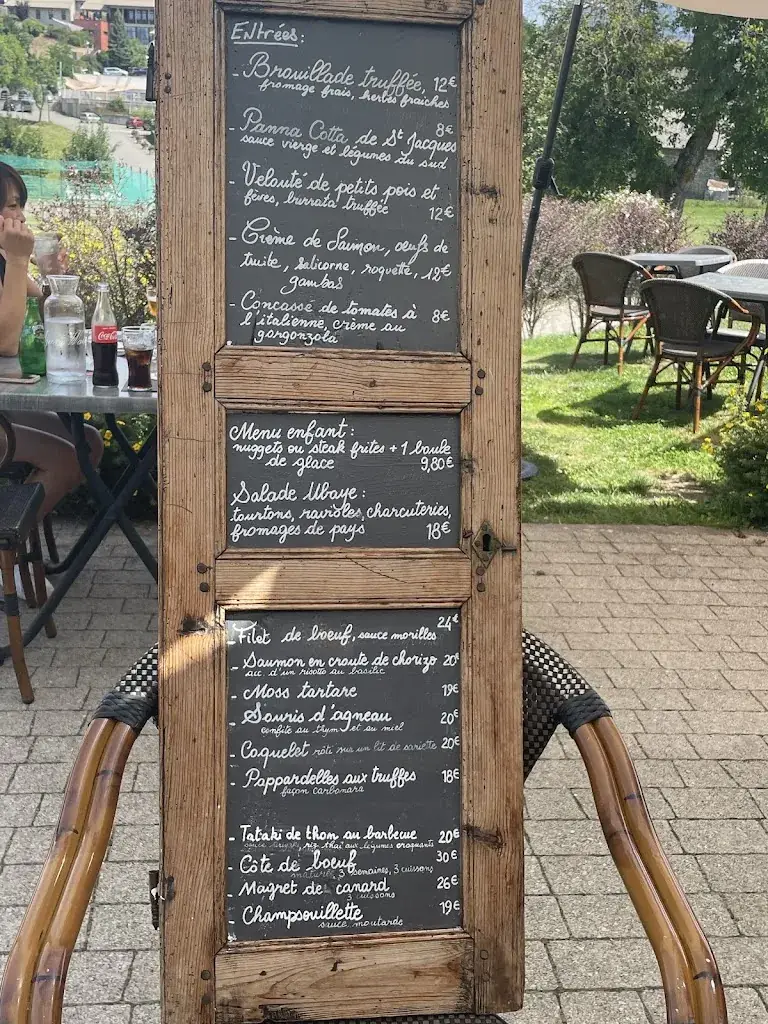 Entrées:
- Brouillade truffée, 12€
fromage frais, herbes fraiches
- Panna Cotta de St Jacques 8€
sauce vierge et légumes du sud
- Velouté de petits pois et
fèves, burrata truffée 12€
- Crème de Saumon, oeufs de
truite, salicorne, roquette, 12€
gambas
- Concassé de tomates à 8€
l'italienne, crème au
gorgonzola
Menu enfant:
nuggets ou steak frites + 1 boule
de glace 9,80€
Salade Ubaye:
tourtons, ravioles, charcuteries,
fromages de pays 18€
- Filet de boeuf, sauce morilles 24€
- Saumon en croute de chorizo 20€
acc. d'un risotto au basilic
- Moss tartare 19€
- Souris d'agneau 20€
confite au thym et au miel
- Coquelet rôti sur un lit de sariette 20€
- Pappardelles aux truffes 18€
façon carbonara
- Tataki de thon au barbecue 20€
riz thaï aux légumes croquants
- Côte de boeuf 30€
maturée 3 semaines, 3 cuissons
- Magret de canard 26€
3 cuissons
- Champsouillette 19€
sauce moutarde
Coca-Cola